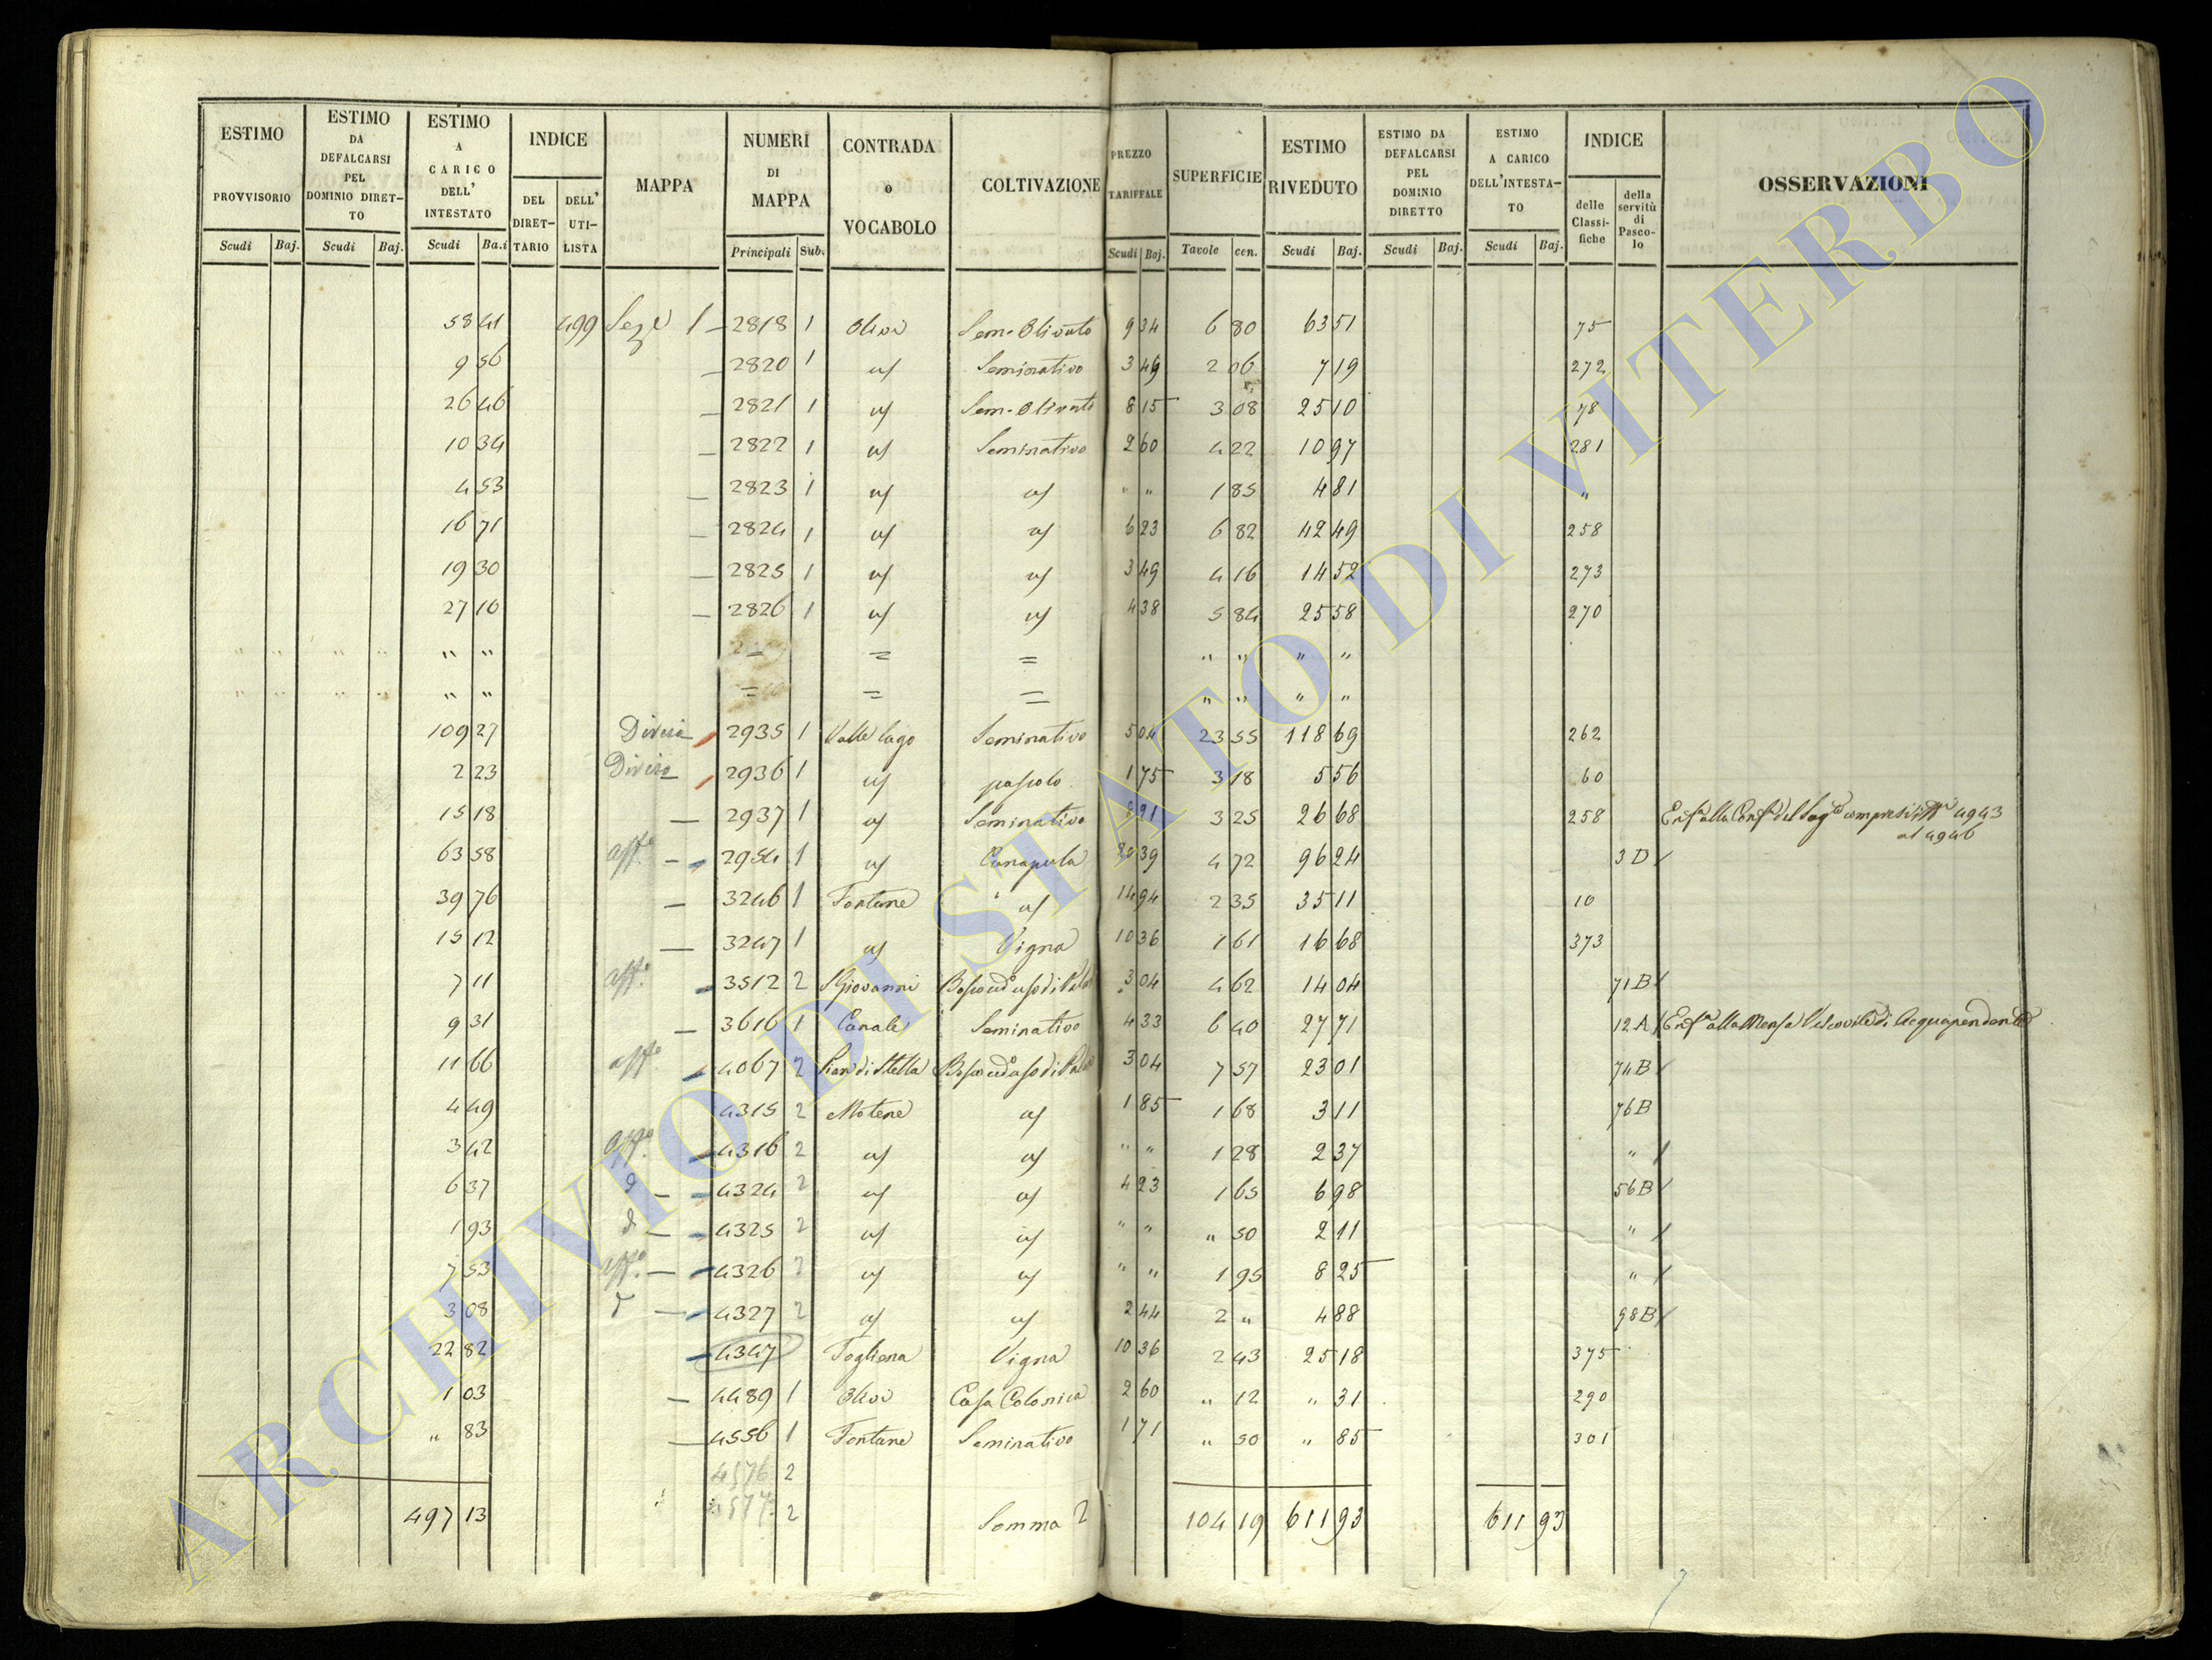 ESTIMO PROVVISORIO Scudi Baj. | ESTIMO DA DEFALCARSI PEL DOMINIO DIRET-TO Scudi Baj. | ESTIMO A CARICO DELL' INTESTATO Scudi Ba.i | INDICE DEL DIRET-TARIO DELL' UTI-LISTA | MAPPA | NUMERI DI MAPPA Principali Sub. | CONTRADA o VOCABOLO | COLTIVAZIONE | PREZZO TARIFFALE Scudi Baj. | SUPERFICIE Tavole cen. | ESTIMO RIVEDUTO Scudi Baj. | ESTIMO DA DEFALCARSI PEL DOMINIO DIRETTO Scudi Baj. | ESTIMO A CARICO DELL'INTESTA-TO Scudi Baj. | INDICE delle Classi-fiche della servitù di Pasco-lo | OSSERVAZIONI
58 41 499 Sez.e 1 – 2818 1 Olivi Sem. Olivato 9 34 6 80 63 51 75
9 56 – 2820 1 " Seminativo 3 49 2 06 7 19 272
26 46 – 2821 1 " Sem. Olivato 8 15 3 08 25 10 78
10 34 – 2822 1 " Seminativo 2 60 4 22 10 97 281
4 53 – 2823 1 " " " " 1 85 4 81 "
16 71 – 2824 1 " " 6 23 6 82 42 49 258
19 30 – 2825 1 " " 3 49 4 16 14 52 273
27 10 – 2826 1 " " 4 38 5 84 25 58 270
" " " " " " = = = " " " "
" " " " " " = = = " " " "
109 27 Divisa 2935 1 Valle lago Seminativo 5 04 23 55 118 69 262
2 23 Divisa 2936 1 " pascolo 1 75 3 18 5 56 60
15 18 – 2937 1 " Seminativo 8 21 3 25 26 68 258 4943
al 4946
63 58 aff.o – 2954 1 " Canapula 20 39 4 72 96 24 3 D /
39 76 – 3246 1 Fontane " 14 94 2 35 35 11 10
15 12 – 3247 1 " Vigna 10 36 1 61 16 68 373
7 11 aff.o 3512 2 S Giovanni Bosco ad uso di 3 04 4 62 14 04 71 B /
9 31 – 3616 1 Canale Seminativo 4 33 6 40 27 71 12 A / Enf.a alla Mensa Vescovile di Acquapendente
11 66 aff.o 4067 2 Pian di Stella Bosco ad uso di 3 04 7 57 23 01 74 B /
4 49 4315 2 Motene " 1 85 1 68 3 11 76 B
3 42 aff.o 4316 2 " " " " 1 28 2 37 " /
6 37 d – 4324 2 " " 4 23 1 65 6 98 56 B /
1 93 d – 4325 2 " " " " " 50 2 11 " /
7 53 aff.o – 4326 2 " " " " 1 95 8 25 " /
3 08 – 4327 2 " " 2 44 2 " 4 88 98 B /
22 82 4347 Fogliena Vigna 10 36 2 43 25 18 375
1 03 – 4489 1 Olivi Casa Colonica 2 60 " 12 " 31 290
" 83 – 4556 1 Fontane Seminativo 1 71 " 50 " 85 301
4576 2
4577 2
497 13 Somma 2 104 19 611 93 611 93
ARCHIVIO DI STATO DI VITERBO